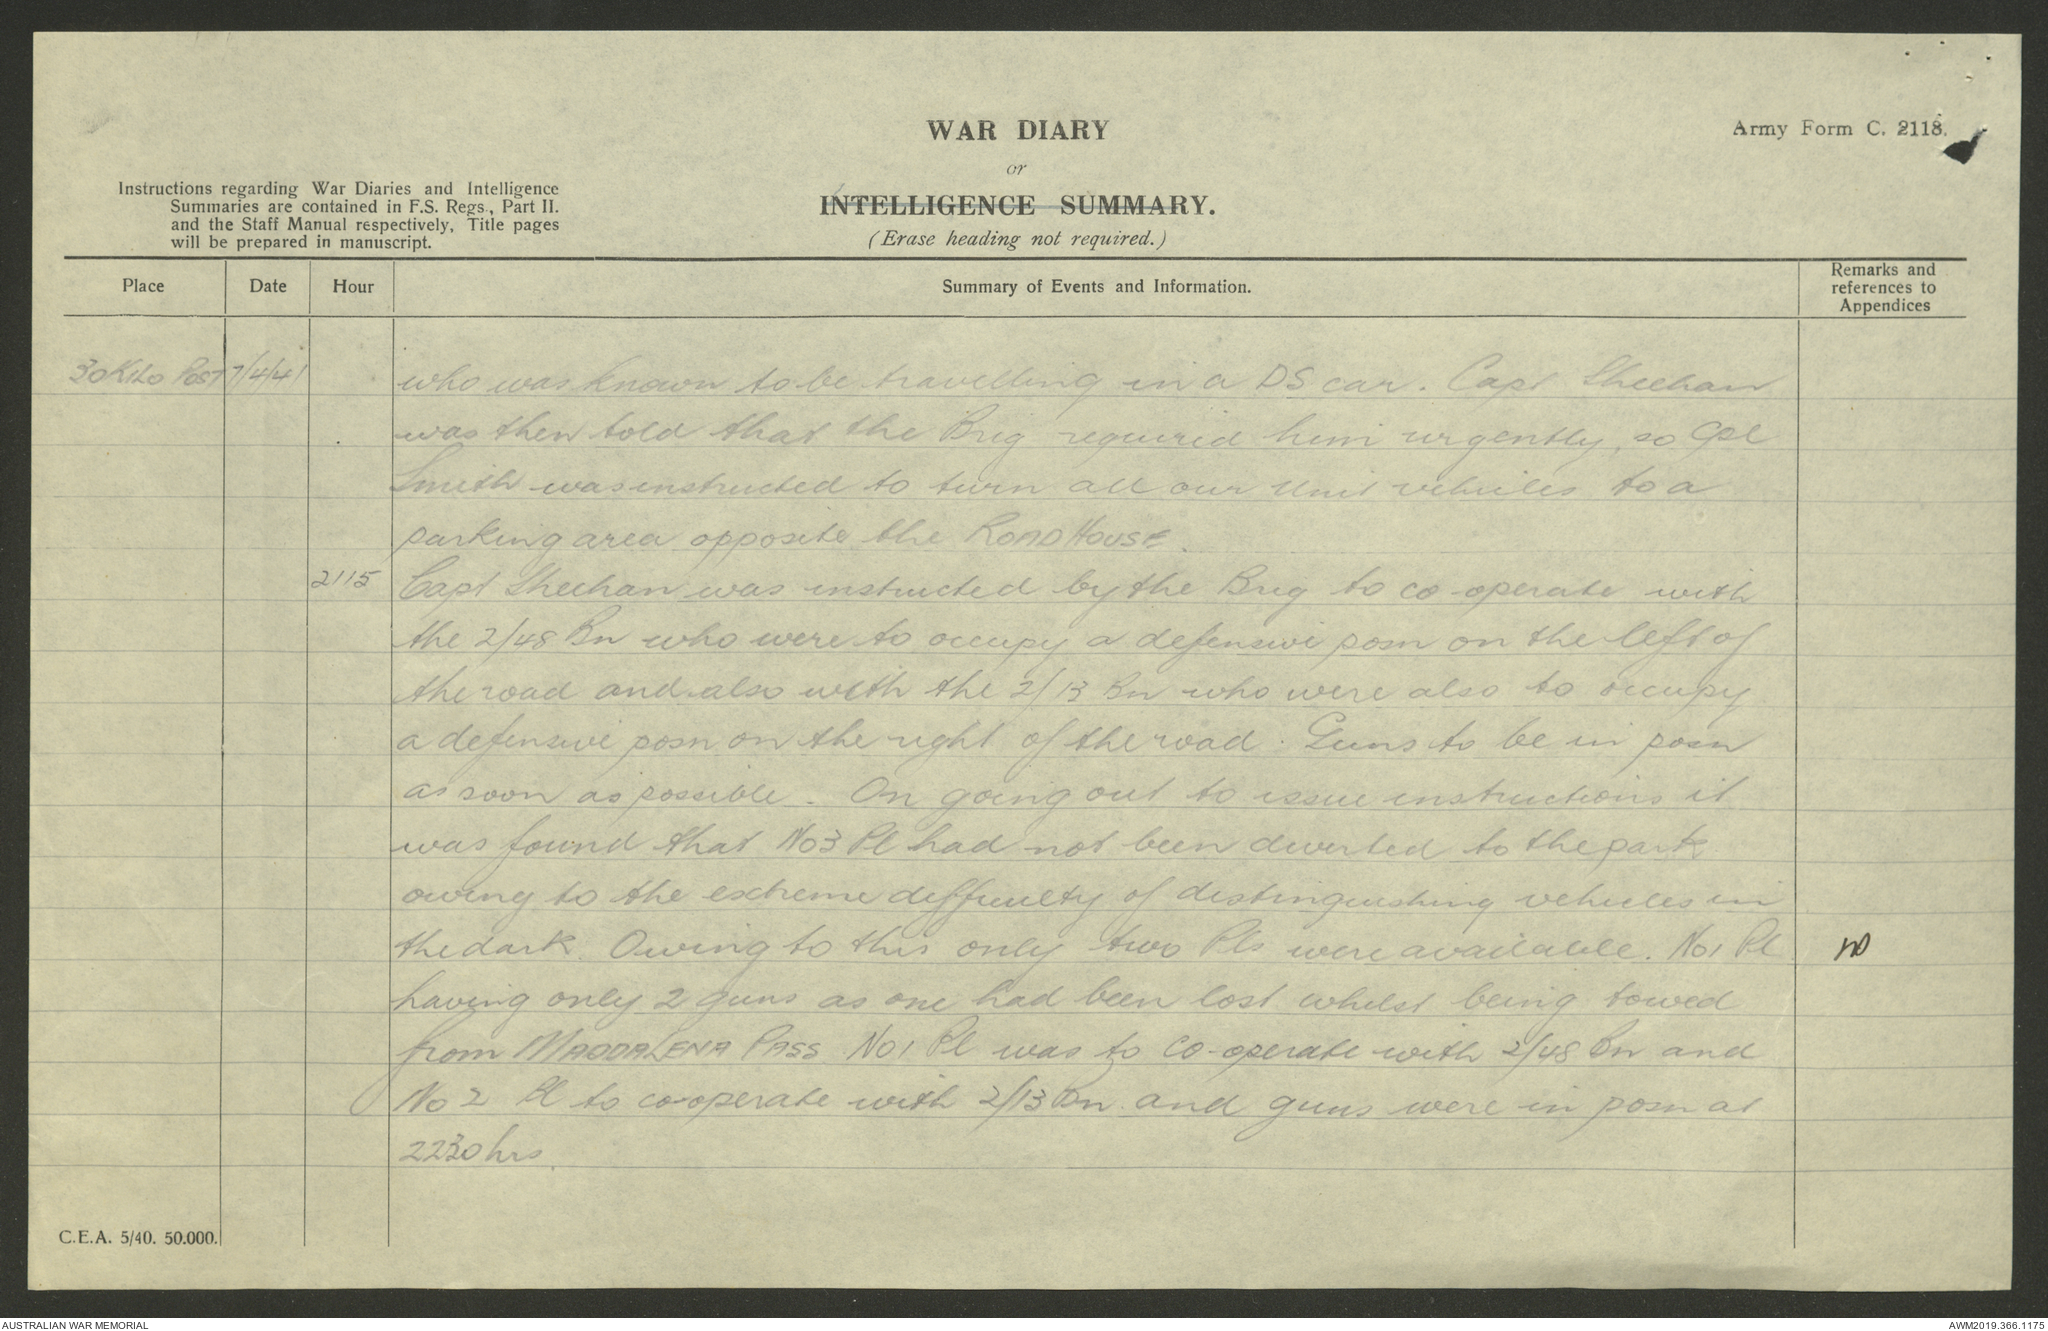 WAR DIARY
or
INTELLIGENCE SUMMARY.
(Erase heading not required.)
Army Form C. 2118.
Instructions regarding War Diaries and Intelligence
Summaries are contained in F.S. Regs., Part II.
and the Staff Manual respectively, Title pages
will be prepared in manuscript.
Place
Date
Hour
Summary of Events and Information.
Remarks and
references to
Appendices
30 KILO POST 7/4/41 who was known to be travelling in a DS car. Capt Sheehan
was then told that the Brig required him urgently, so Cpl
Smith was instructed to turn all our Unit vehicles to a
parking area opposite the ROADHOUSE.
2115 Capt Sheehan was instructed by the Brig to co-operate with
the 2/48 Bn who were to occupy a defensive posn on the left of
the road and also with the 2/13 Bn who were also to occupy
a defensive posn on the right of the road. Guns to be in posn
as soon as possible. On going out to issue instructions it
was found that No3 Pl had not been diverted to the park
owing to the extreme difficulty of distinguishing vehicles in
the dark. Owing to this only two Pls were available. No1 Pl
having only 2 guns as one had been lost whilst being towed
from MADDALENA PASS. No1 Pl was to co-operate with 2/48 Bn and
No 2 Pl to co-operate with 2/13 Bn and guns were in posn at
2230 hrs.
C.E.A. 5/40. 50.000.
AUSTRALIAN WAR MEMORIAL
AWM2019.366.1175